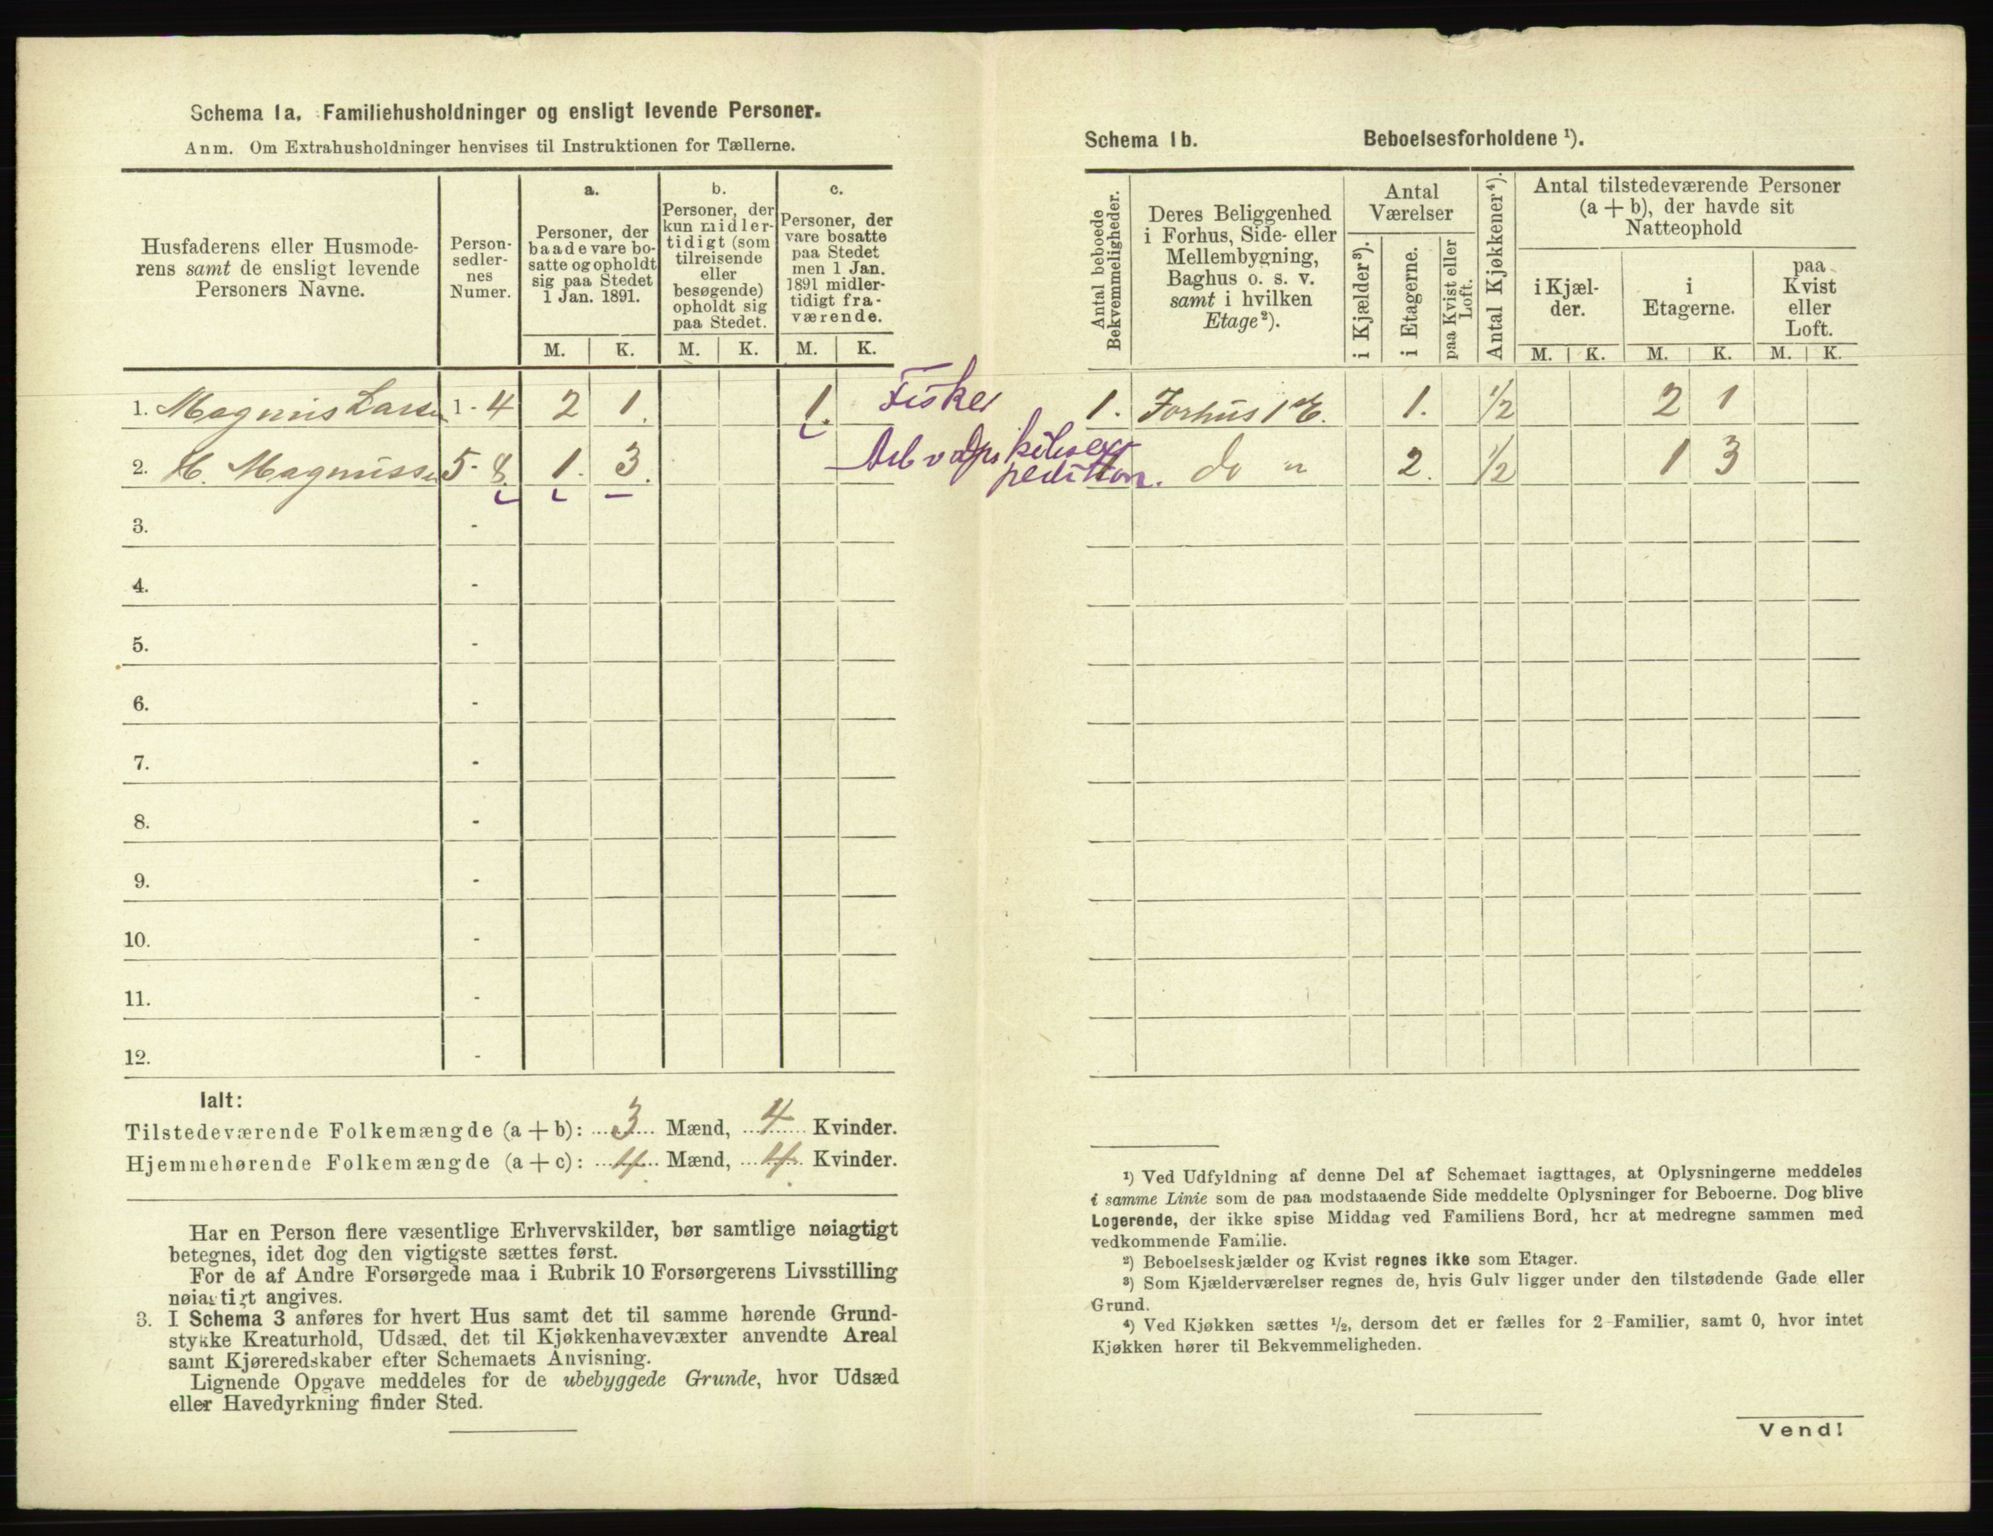 Schema 1a. Familiehusholdninger og ensligt levende Personer.
Anm. Om Extrahusholdninger henvises til Instruktionen for Tællerne.
Husfaderens eller Husmode-
rens samt de ensligt levende
Personers Navne.
Person-
sedler-
nes
Numer.
a.
Personer, der
baade vare bo-
satte og opholdt
sig paa Stedet
1 Jan. 1891.
b.
Personer, der
kun midler-
tidigt (som
tilreisende
eller
besøgende)
opholdt sig
paa Stedet.
c.
Personer, der
vare bosatte
paa Stedet
men 1 Jan.
1891 midler-
tidigt fra-
værende.
M. K. M. K. M. K.
1. Magnus Larsen 1 - 4 2 1. 1. Fisker
2. M. Magnussen 5 - 8. 1. 3.
3. -
4. -
5. -
6. -
7. -
8. -
9. -
10. -
11. -
12. -
Ialt:
Tilstedeværende Folkemængde (a + b): 3 Mænd, 4 Kvinder.
Hjemmehørende Folkemængde (a + c): 4 Mænd, 4 Kvinder.
Har en Person flere væsentlige Erhvervskilder, bør samtlige nøiagtigt
betegnes, idet dog den vigtigste sættes først.
For de af Andre Forsørgede maa i Rubrik 10 Forsørgerens Livsstilling
nøiagtigt angives.
3. I Schema 3 anføres for hvert Hus samt det til samme hørende Grund-
stykke Kreaturhold, Udsæd, det til Kjøkkenhavevæxter anvendte Areal
samt Kjøreredskaber efter Schemaets Anvisning.
Lignende Opgave meddeles for de ubebyggede Grunde, hvor Udsæd
eller Havedyrkning finder Sted.
Schema 1b. Beboelsesforholdene ¹).
Antal beboede
Bekvemmeligheder.
Deres Beliggenhed
i Forhus, Side- eller
Mellembygning,
Baghus o. s. v.
samt i hvilken
Etage ²).
Antal
Værelser
i Kjælder ³).
i Etagerne.
paa Kvist eller
Loft.
Antal Kjøkkener ⁴).
Antal tilstedeværende Personer
(a + b), der havde sit
Natteophold
i Kjæl-
der.
i
Etagerne.
paa
Kvist
eller
Loft.
M. K. M. K. M. K.
1. Forhus 1 E. 1. ½ 2 1
do " 2. ½ 1 3
¹) Ved Udfyldning af denne Del af Schemaet iagttages, at Oplysningerne meddeles
i samme Linie som de paa modstaaende Side meddelte Oplysninger for Beboerne. Dog blive
Logerende, der ikke spise Middag ved Familiens Bord, her at medregne sammen med
vedkommende Familie.
²) Beboelseskjælder og Kvist regnes ikke som Etager.
³) Som Kjælderværelser regnes de, hvis Gulv ligger under den tilstødende Gade eller
Grund.
⁴) Ved Kjøkken sættes ½, dersom det er fælles for 2 Familier, samt 0, hvor intet
Kjøkken hører til Bekvemmeligheden.
Vend!